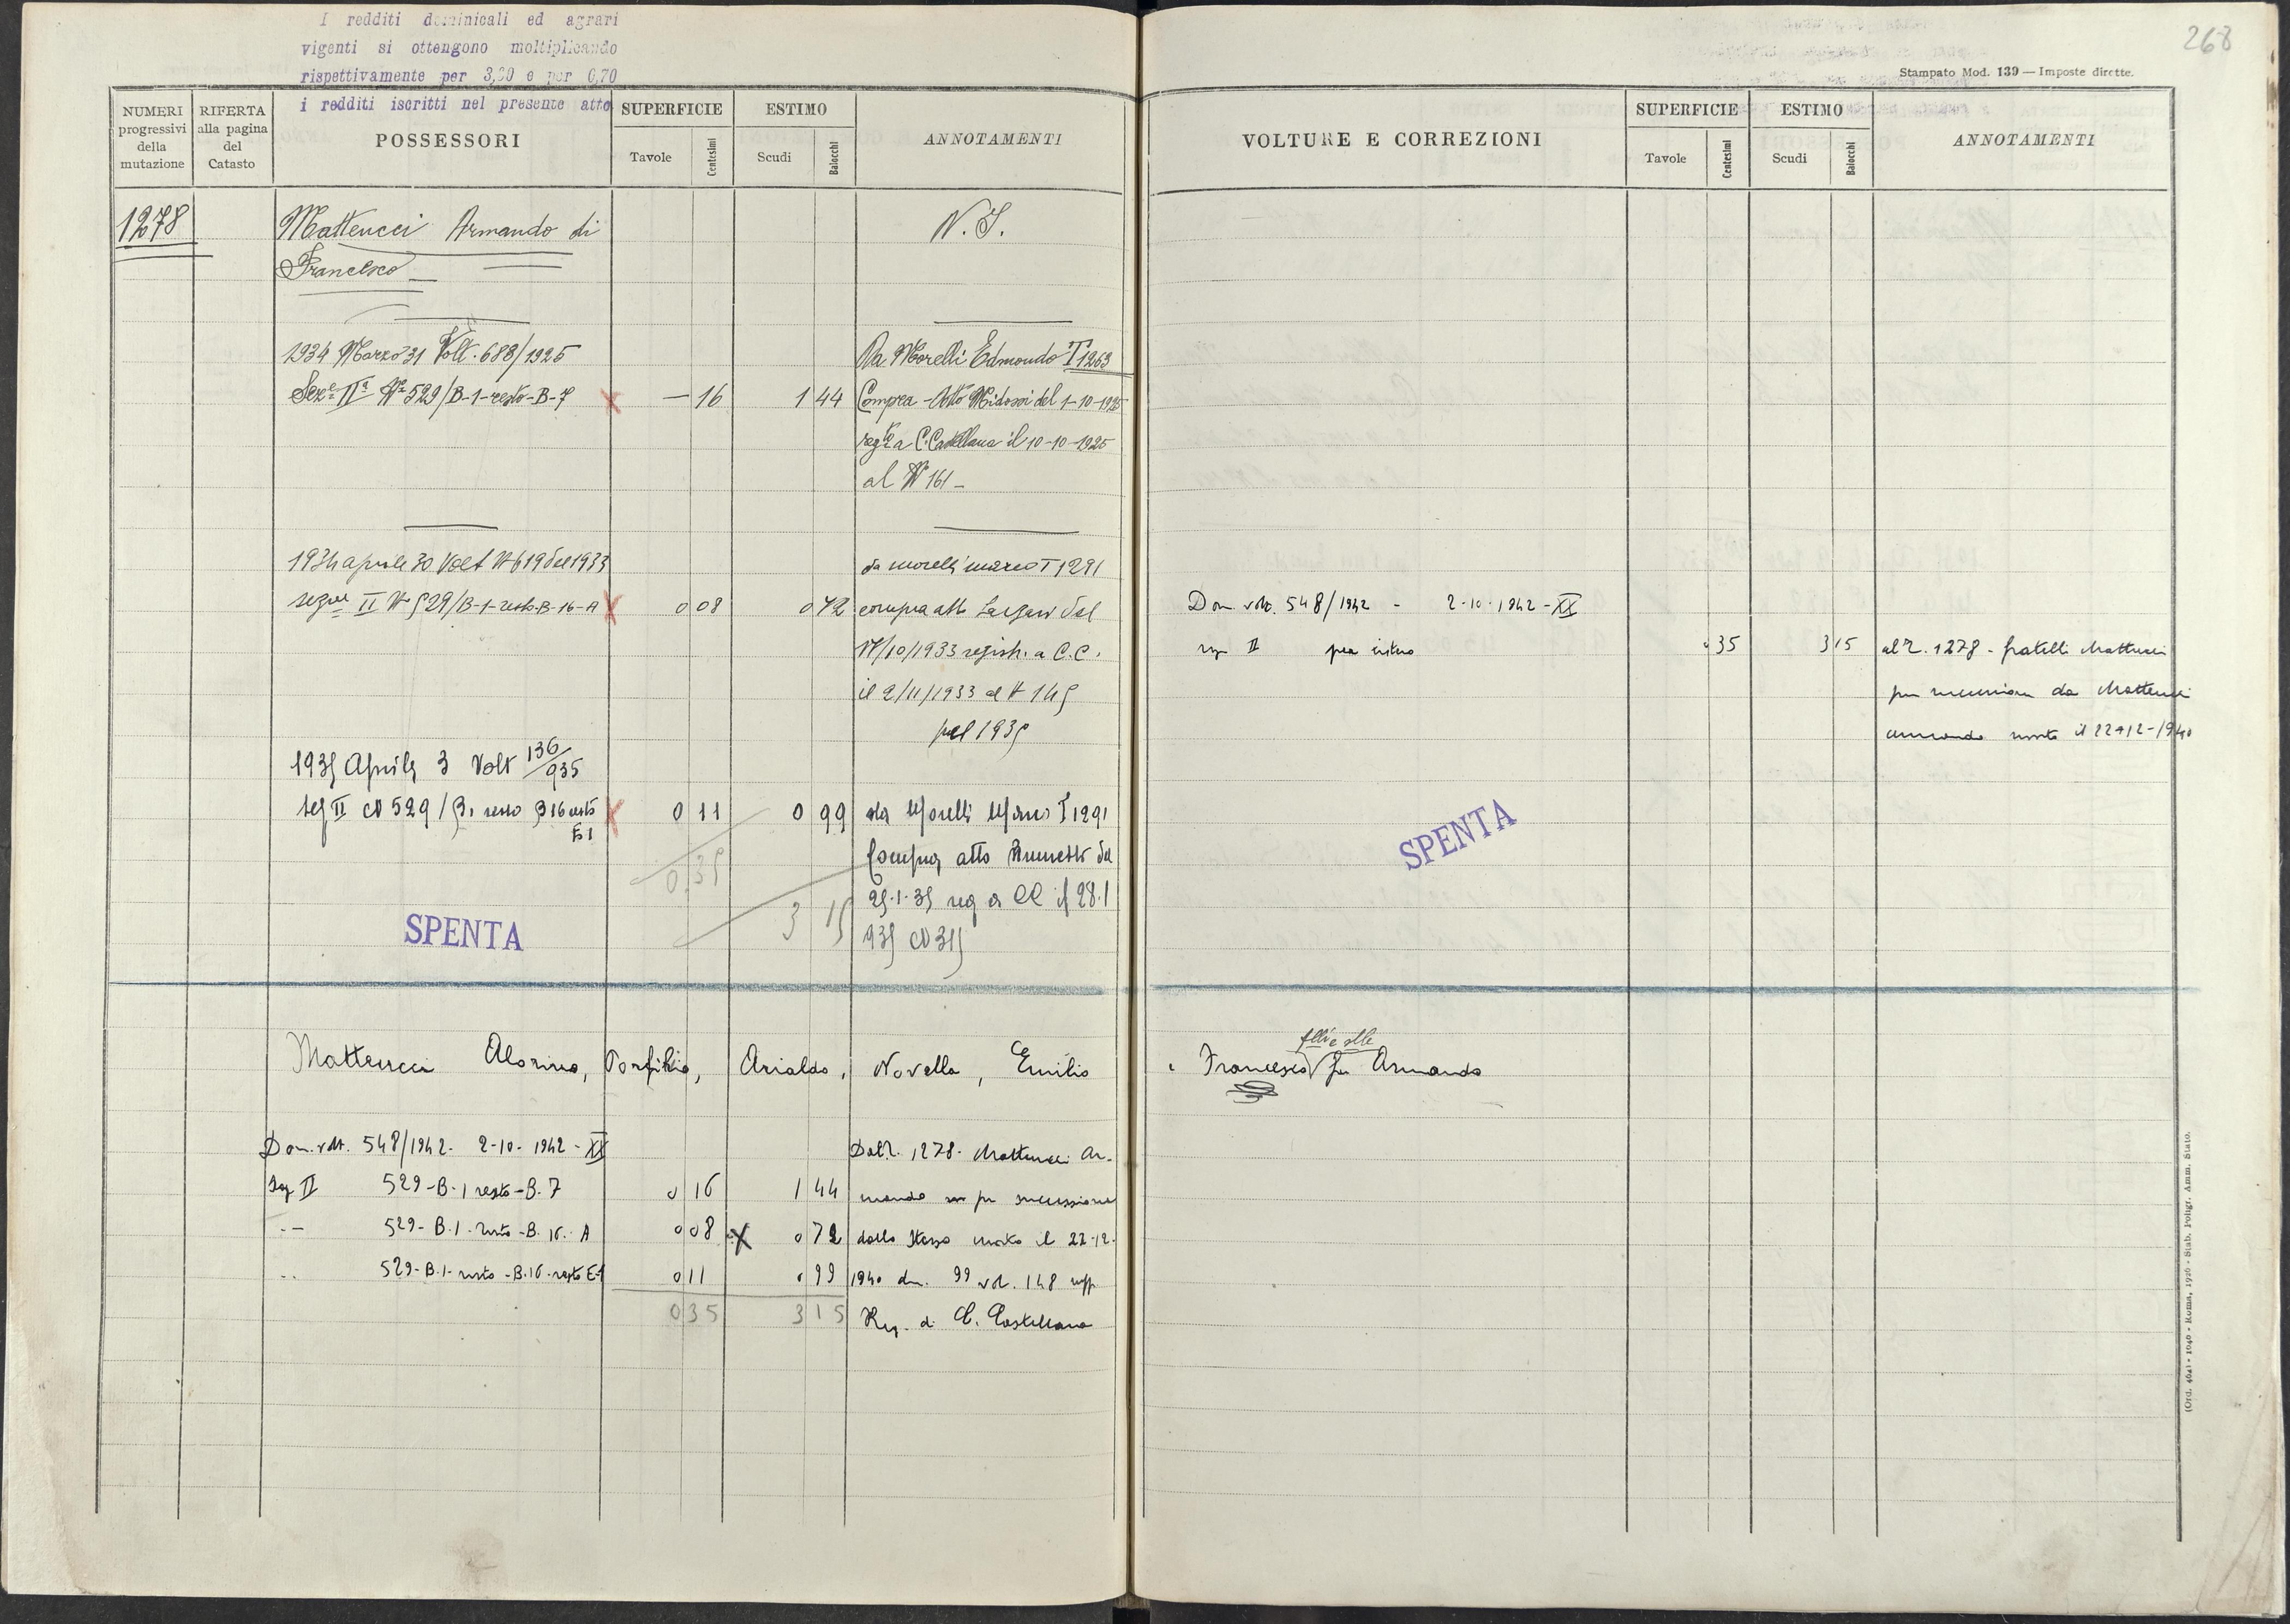 I redditi dominicali ed agrari
vigenti si ottengono moltiplicando
rispettivamente per 3,20 e per 0,70
i redditi iscritti nel presente atto
268
Stampato Mod. 139 — Imposte dirette.
NUMERI progressivi della mutazione
RIFERTA alla pagina del Catasto
POSSESSORI
SUPERFICIE
Tavole
Centesimi
ESTIMO
Scudi
Baiocchi
ANNOTAMENTI
VOLTURE E CORREZIONI
SUPERFICIE
Tavole
Centesimi
ESTIMO
Scudi
Baiocchi
ANNOTAMENTI
1278
Matteucci Armando di
N. I.
Francesco
1934 Marzo 31 Volt. 688/1925
Da Morelli Edmondo T 1263
Seze IIa No 529/B-1-resto-B-7 — 16 1 44
Compra - Atto Midossi del 1-10-1925
regto a C. Castellana il 10-10-1925
al No 161 -
1934 aprile 30 Volt N 619 del 1933
da Morelli Marco T 1291
sezne II N 529/B-1-resto-B-16-A 0 08 0 72
compra atto del
17/10/1933 registr. a C.C.
il 2/11/1933 al N 145
pel 1935
Dom. volt. 548/1942 - 2-10-1942-XX
sez II per intero 35 3 15
al R. 1278 - fratelli Matteucci
per successione da Matteucci
Armando morto il 22-12-1940
1935 Aprile 3 Volt 136/935
sez II N 529/B1 resto B16 resto E1 0 11 0 99
da Morelli Marco T 1291
Compra atto del
25-1-35 reg a CC il 28.1
935 N 315
0.35
3 15
SPENTA
SPENTA
Matteucci Alorino, Porfirio, Arialdo, Novella, Emilio
e Francesco flli e slle fu Armando
Dom. volt. 548/1942. 2-10-1942-XX
Dal R. 1278. Matteucci Ar-
Sez II 529-B-1 resto-B.7 0 16 1 44
mando per successione
-- 529-B.1-resto-B.16-A 0 08 X 0 72
dallo stesso morto il 22-12-
-- 529-B.1-resto-B.16-resto E-1 0 11 0 99
1940 den. 99 vol. 148 uff.
0 35 3 15
Reg. di C. Castellana
(Ord. 464) - 1940 - Roma, 1926 - Stab. Poligr. Amm. Stato.